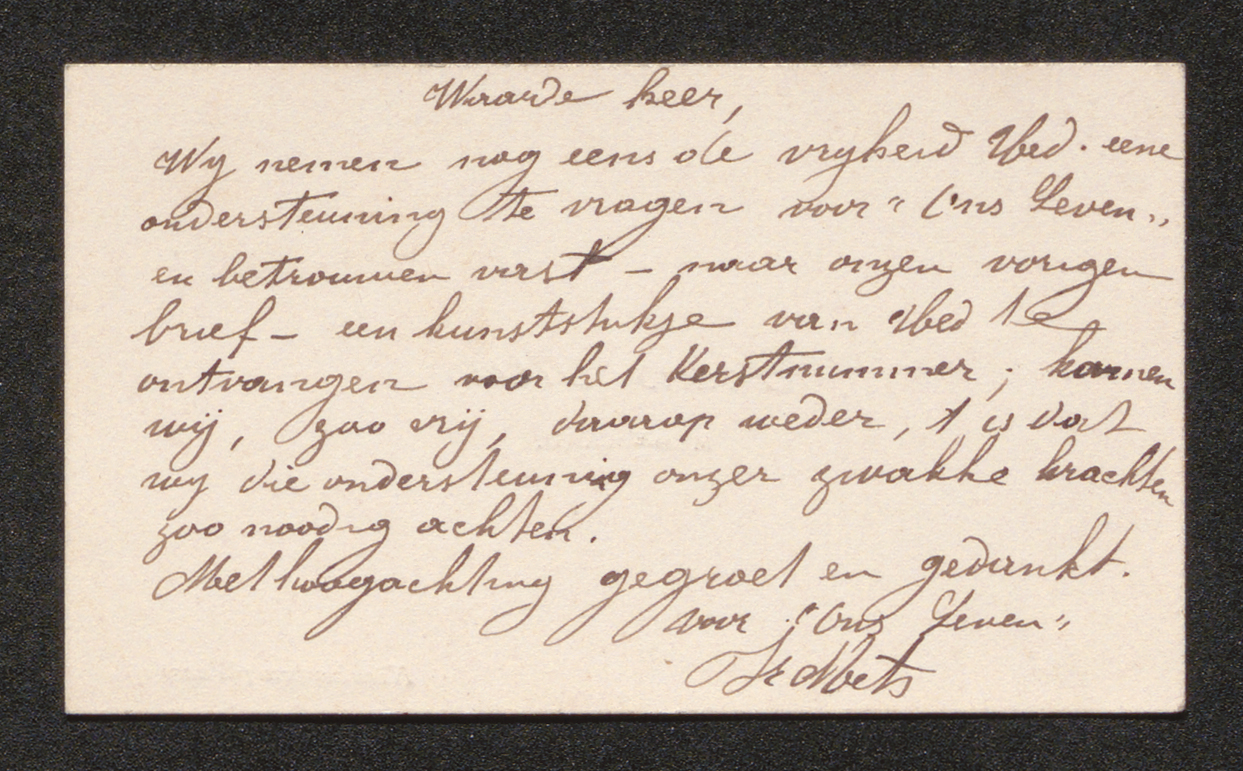 Waarde heer,
Wy nemen nog eens de vryheid Ued. eene
ondersteuning te vragen voor "Ons Leven"
en betrouwen vast – naar onzen vorigen
brief – een kunststukje van Ued te
ontvangen voor het Kerstnummer; komen
wij, zoo vrij, daarop weder, 't is dat
wy die ondersteuning onzer zwakke krachten
zoo noodig achten.
Met hoogachting gegroet en gedankt.
voor "Ons Leven"
Fr Mets